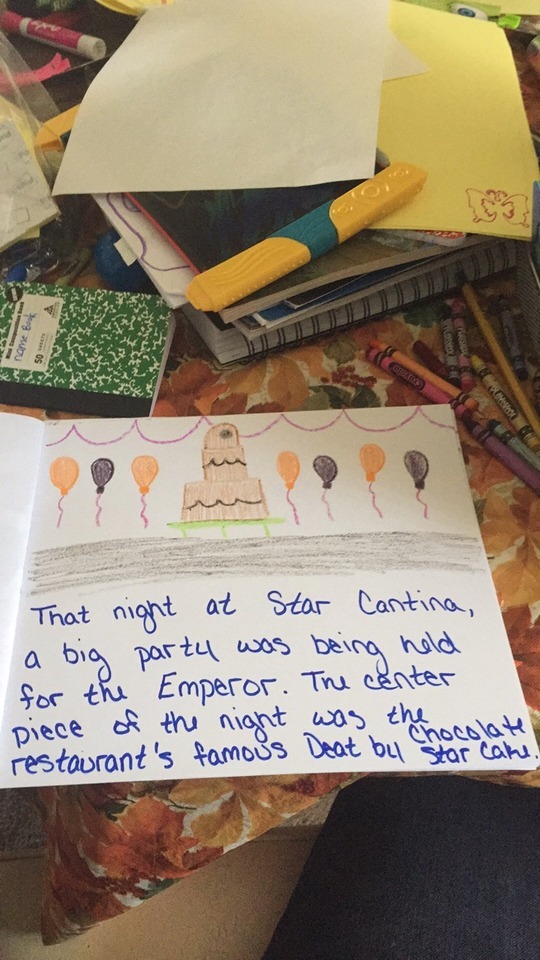 name Book
50 SHEETS
That night at Star Cantina,
a big party was being held
for the Emperor. The center
piece of the night was the
restaurant's famous Deat by Chocolate
Star Cake.